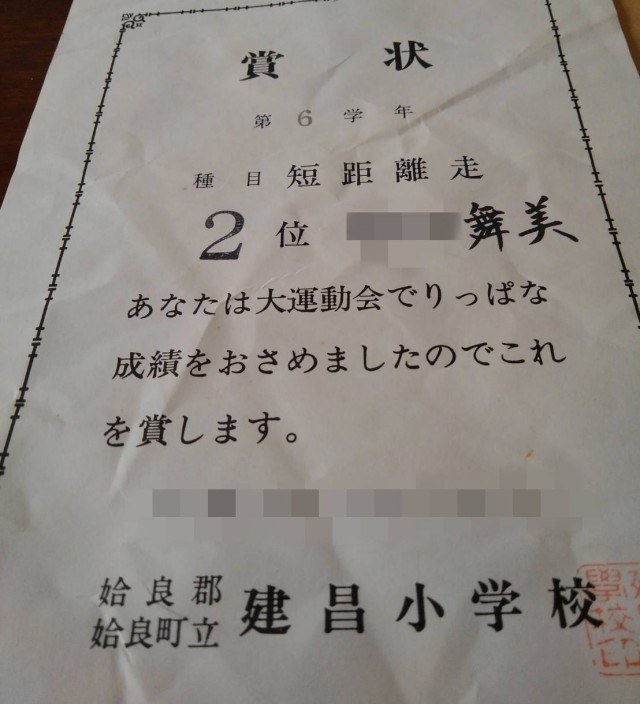 賞状
第6学年
種目 短距離走
2位 舞美
あなたは大運動会でりっぱな
成績をおさめましたのでこれ
を賞します。
姶良郡
姶良町立 建昌小学校